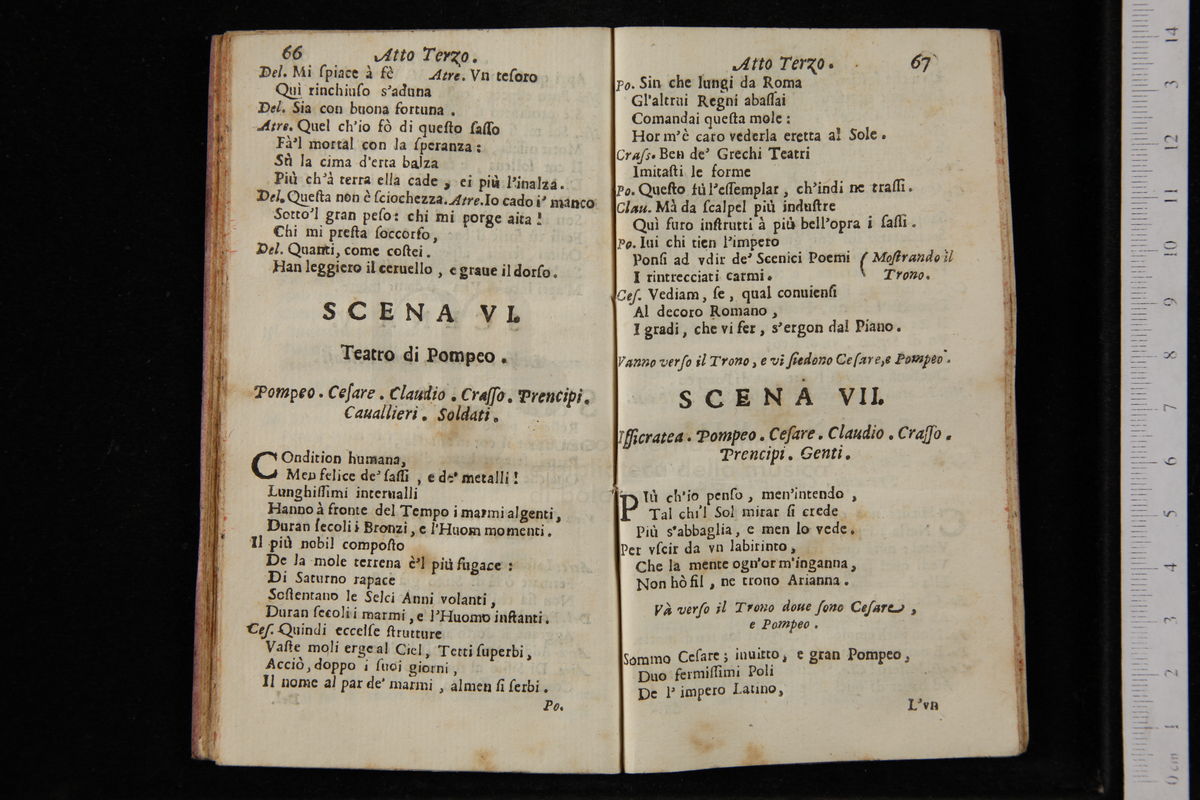 66 Atto Terzo.
Del. Mi ſpiace à fè Atre. Vn teſoro
Quì rinchiuſo s'aduna
Del. Sia con buona fortuna.
Atre. Quel ch'io fò di queſto ſaſſo
Fà'l mortal con la ſperanza:
Sù la cima d'erta balza
Più ch'à terra ella cade, ei più l'inalza.
Del. Queſta non è ſciochezza. Atre. Io cado i' manco
Sotto'l gran peſo: chi mi porge aita!
Chi mi preſta ſoccorſo,
Del. Quanti, come coſtei.
Han leggiero il ceruello, e graue il dorſo.
SCENA VI.
Teatro di Pompeo.
Pompeo. Ceſare. Claudio. Craſſo. Prencipi.
Cauallieri. Soldati.
COndition humana,
Men felice de' ſaſſi, e de' metalli!
Lunghiſſimi interualli
Hanno à fronte del Tempo i marmi algenti,
Duran ſecoli i Bronzi, e l'Huom momenti.
Il più nobil compoſto
De la mole terrena è'l più fugace:
Di Saturno rapace
Soſtentano le Selci Anni volanti,
Duran ſecoli i marmi, e l'Huomo inſtanti.
Ceſ. Quindi eccelſe ſtrutture
Vaſte moli erge al Ciel, Tetti ſuperbi,
Acciò, doppo i ſuoi giorni,
Il nome al par de' marmi, almen ſi ſerbi.
Po.
Atto Terzo. 67
Po. Sin che lungi da Roma
Gl'altrui Regni abaſſai
Comandai queſta mole:
Hor m'è caro vederla eretta al Sole.
Craſs. Ben de' Grechi Teatri
Imitaſti le forme
Po. Queſto fù l'eſſemplar, ch'indi ne traſſi.
Clau. Mà da ſcalpel più induſtre
Quì furo inſtrutti à più bell'opra i ſaſſi.
Po. Iui chi tien l'impero
Ponſi ad vdir de' Scenici Poemi ( Moſtrando il
I rintrecciati carmi. Trono.
Ceſ. Vediam, ſe, qual conuienſi
Al decoro Romano,
I gradi, che vi fer, s'ergon dal Piano.
Vanno verſo il Trono, e vi ſiedono Ceſare, e Pompeo.
SCENA VII.
Iſſicratea. Pompeo. Ceſare. Claudio. Craſſo.
Prencipi. Genti.
PIù ch'io penſo, men'intendo,
Tal chi'l Sol mirar ſi crede
Più s'abbaglia, e men lo vede.
Per vſcir da vn labirinto,
Che la mente ogn'or m'inganna,
Non hò fil, ne trouo Arianna.
Và verſo il Trono doue ſono Ceſare,
e Pompeo.
Sommo Ceſare; inuitto, e gran Pompeo,
Duo fermiſſimi Poli
De l'impero Latino,
L'vn
14
13
12
11
10
9
8
7
6
5
4
3
2
1
0 cm